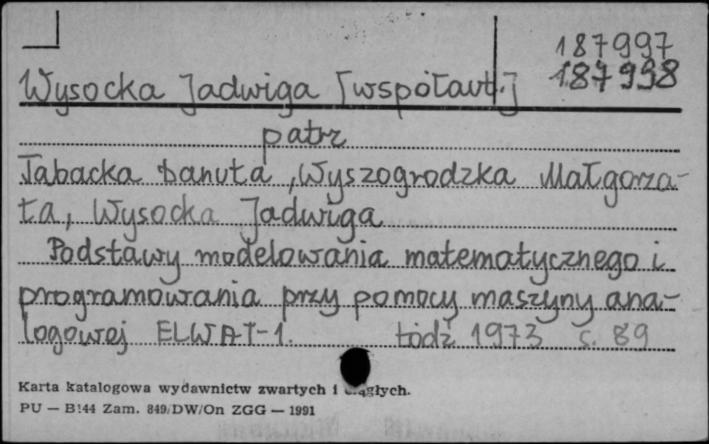 187997
187998
Wysocka Jadwiga [współaut.]
patrz
Tabacka Danuta, Wyszogrodzka Małgorza-
ta, Wysocka Jadwiga
Podstawy modelowania matematycznego i
programowania przy pomocy maszyny ana-
logowej ELWAT-1. Łódź 1973 s. 89
Karta katalogowa wydawnictw zwartych i ciągłych.
PU — B144 Zam. 849/DW/On ZGG — 1991